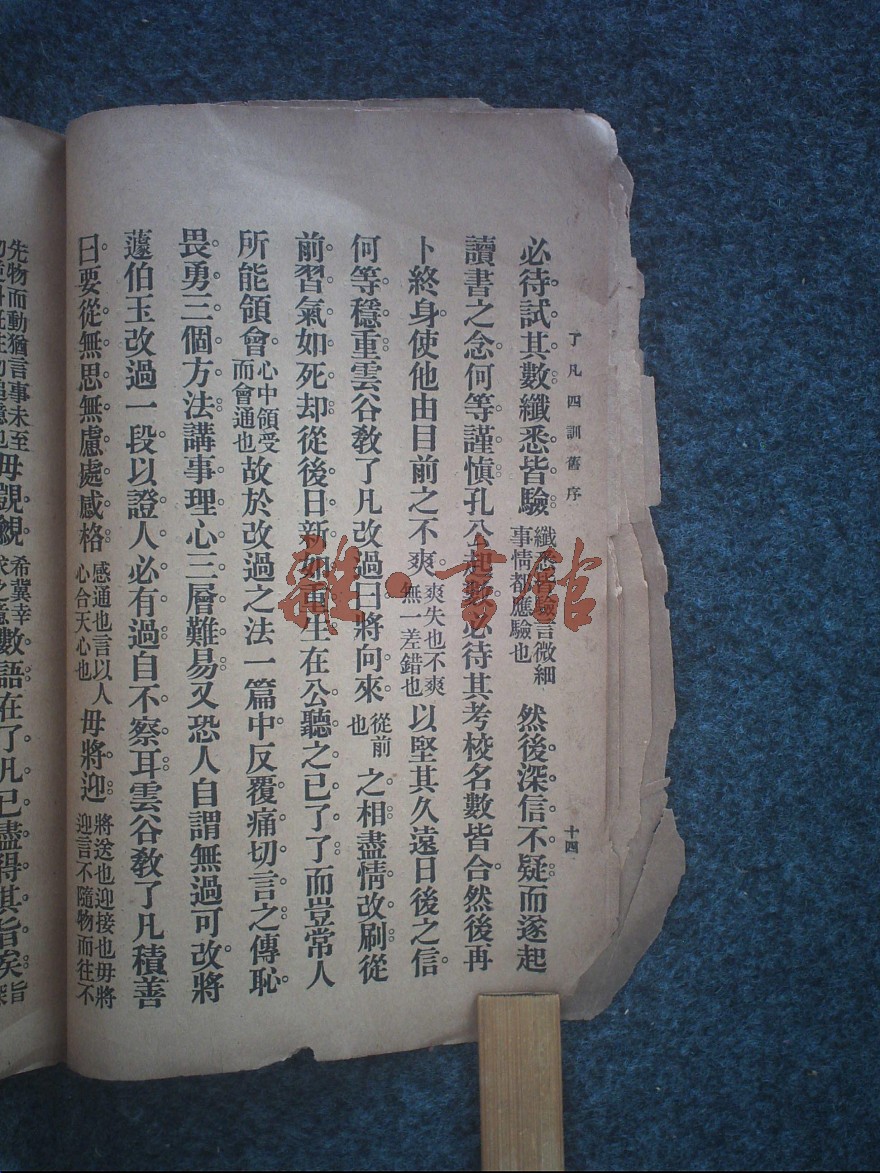 了凡四訓舊序
十四
必待試其數纖悉皆驗纖悉皆驗言微細事情都應驗也然後深信不疑而遂起
讀書之念何等謹慎孔公起數必待其考校名數皆合然後再
卜終身使他由目前之不爽爽失也不爽無一差錯也以堅其久遠日後之信
何等穩重雲谷敎了凡改過曰將向來從前也之相盡情改刷從
前習氣如死却從後日新如重生在公聽之已了了而豈常人
所能領會心中領受而會通也故於改過之法一篇中反覆痛切言之傳恥
畏勇三個方法講事理心三層難易又恐人自謂無過可改將
蘧伯玉改過一段以證人必有過自不察耳雲谷敎了凡積善
曰要從無思無慮處感格感通也言以人心合天心也毋將迎將送也迎接也毋將迎言不隨物而往不
先物而動猶言事未至毋覬覦希冀幸數語在了凡已盡得其旨矣
雜·書館